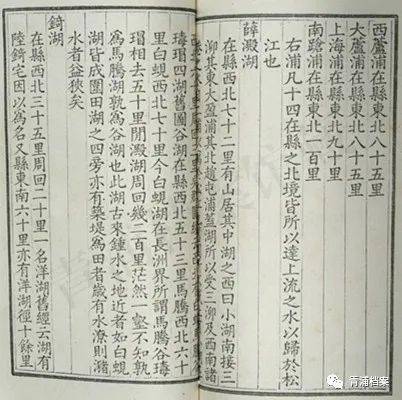 西蘆浦在縣東北八十五里
大盧浦在縣東北八十五里
上海浦在縣東北九十里
南蹌浦在縣東北一百里
右浦凡十四在縣之北境皆所以達上流之水以歸於松
江也
薛澱湖
在縣西北七十二里有山居其中湖之西曰小湖南接三
泖其東大盈浦其北趙屯浦蓋湖所以受三泖及西南諸
瑇瑁四湖舊圖谷湖在縣西北五十三里馬騰西北六十
里白蜆西北七十里今白蜆湖在長洲界所謂馬騰谷瑇
瑁相去五十里間澱湖周回幾二百里茫然一壑不知孰
為馬騰湖孰為谷湖也此湖古來鍾水之地近者如白蜆
湖皆成圍田湖之四旁亦有築堤為田者歲有水潦則瀦
水者益狹矣
錡湖
在縣西北三十五里周回二十里一名洋湖舊經云湖有
陸錡宅因以為名又縣東南六十里亦有洋湖徑十餘里
青浦档案